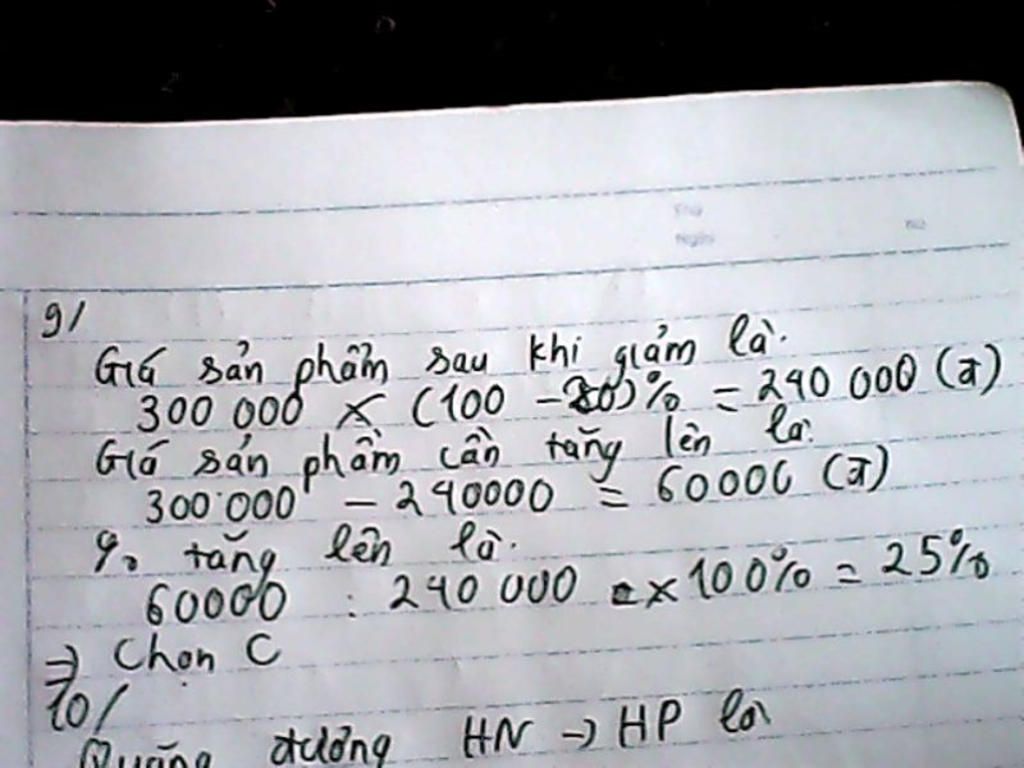 9/
Giá sản phẩm sau khi giảm là.
300 000 x (100 - 20)% = 240 000 (đ)
Giá sản phẩm cần tăng lên là.
300 000 - 240000 = 60000 (đ)
% tăng lên là.
60000 : 240 000 x 100% = 25%
=> Chọn C
10/
Quãng đường HN -> HP là